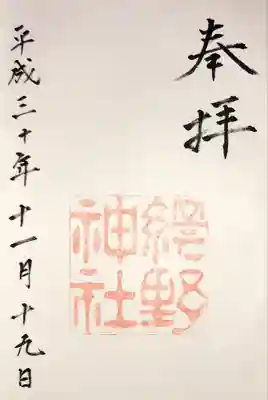 奉拝
綿野
神社
平成三十年十一月十九日